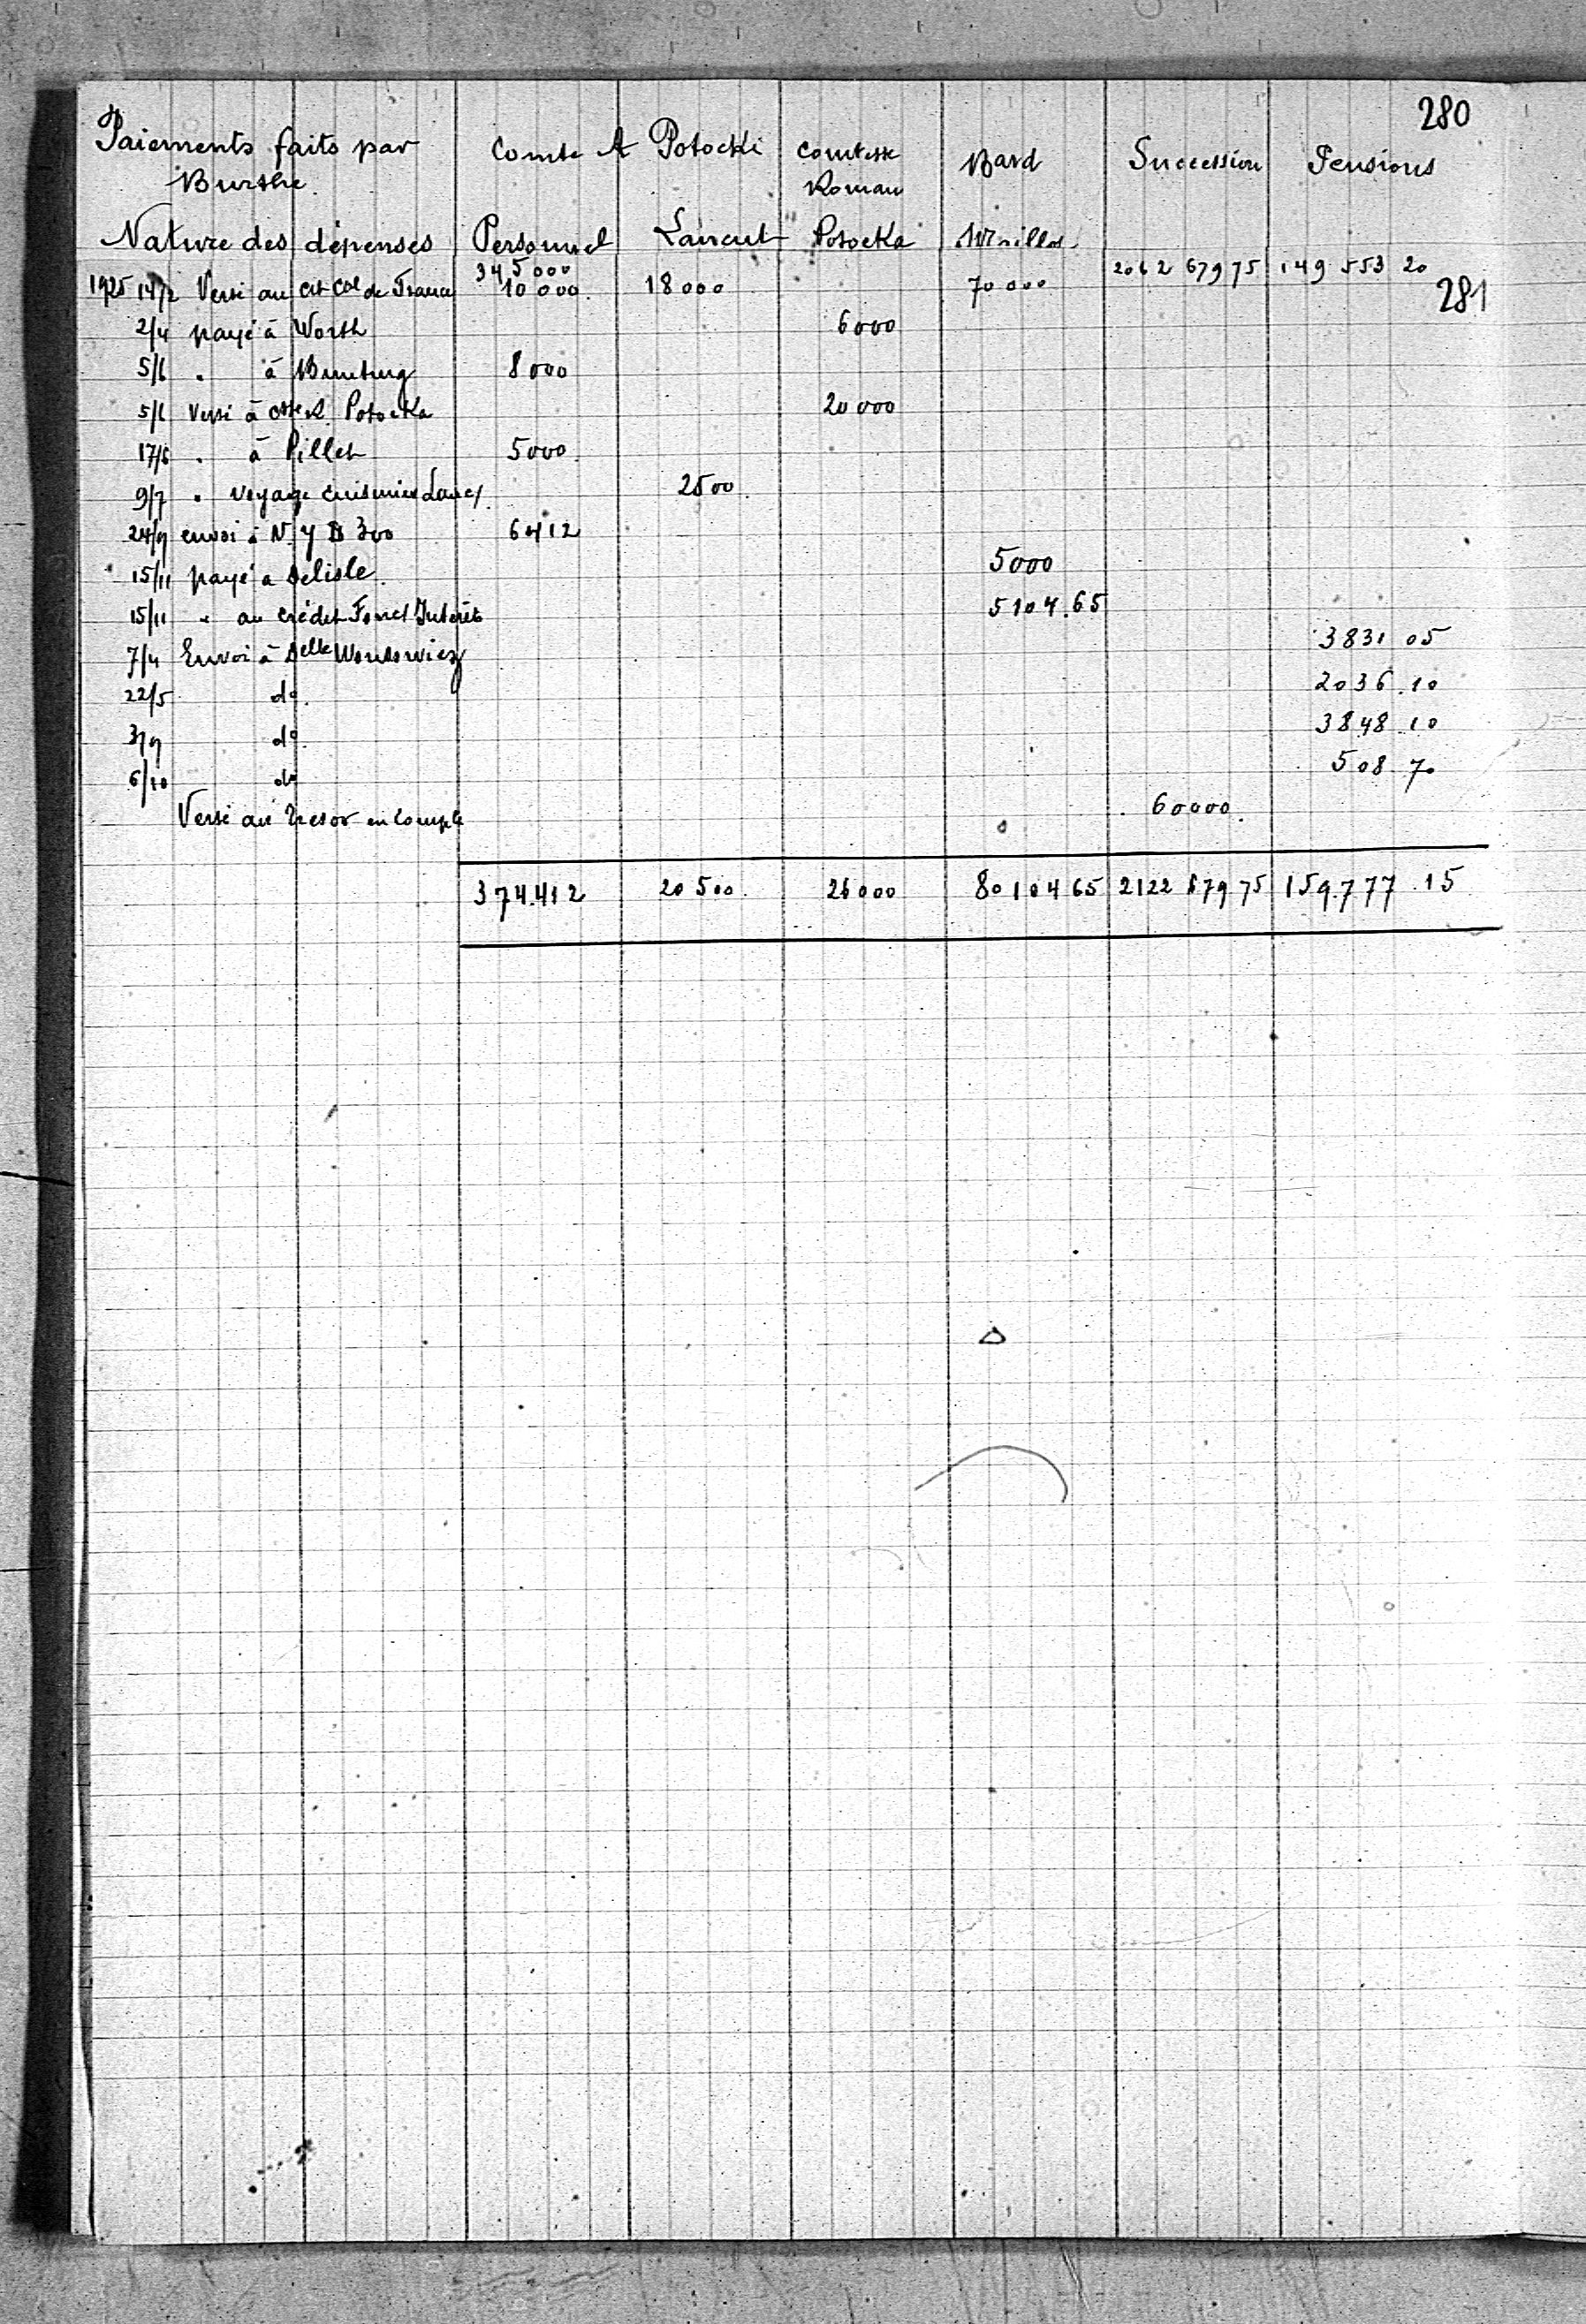 280
Paiements faits par Comte A Potocki Comtesse Bard Succession Pensions
Burthe. Roman
Nature des dépenses Personnel Lancut Potocka
345000 2062 679 75 149 553 20
1925 14/2 Versé au Cit Col de France 10000. 18000 70000 281
2/4 payé à Worth 6000
5/6 " à 8000
5/6 Versé à Ctesse R. Potocka 20000
17/6 " à Pillet 5000.
9/7 " voyage cuisinier Lanc/. 2500.
24/9 envoi à N.Y $ 300 6412
15/11 payé à Delisle. 5000
15/11 " au Crédit Foncr Intérêts 5104.65
7/4 Envoi à Delle 3831 05
22/5 do. 2036.10
3/9 do. 3848.10
6/10 do 508 70
Versé au Trésor en Compte 60000.
374.412 20500. 26000 80104 65 2122 679 75 159.777.15